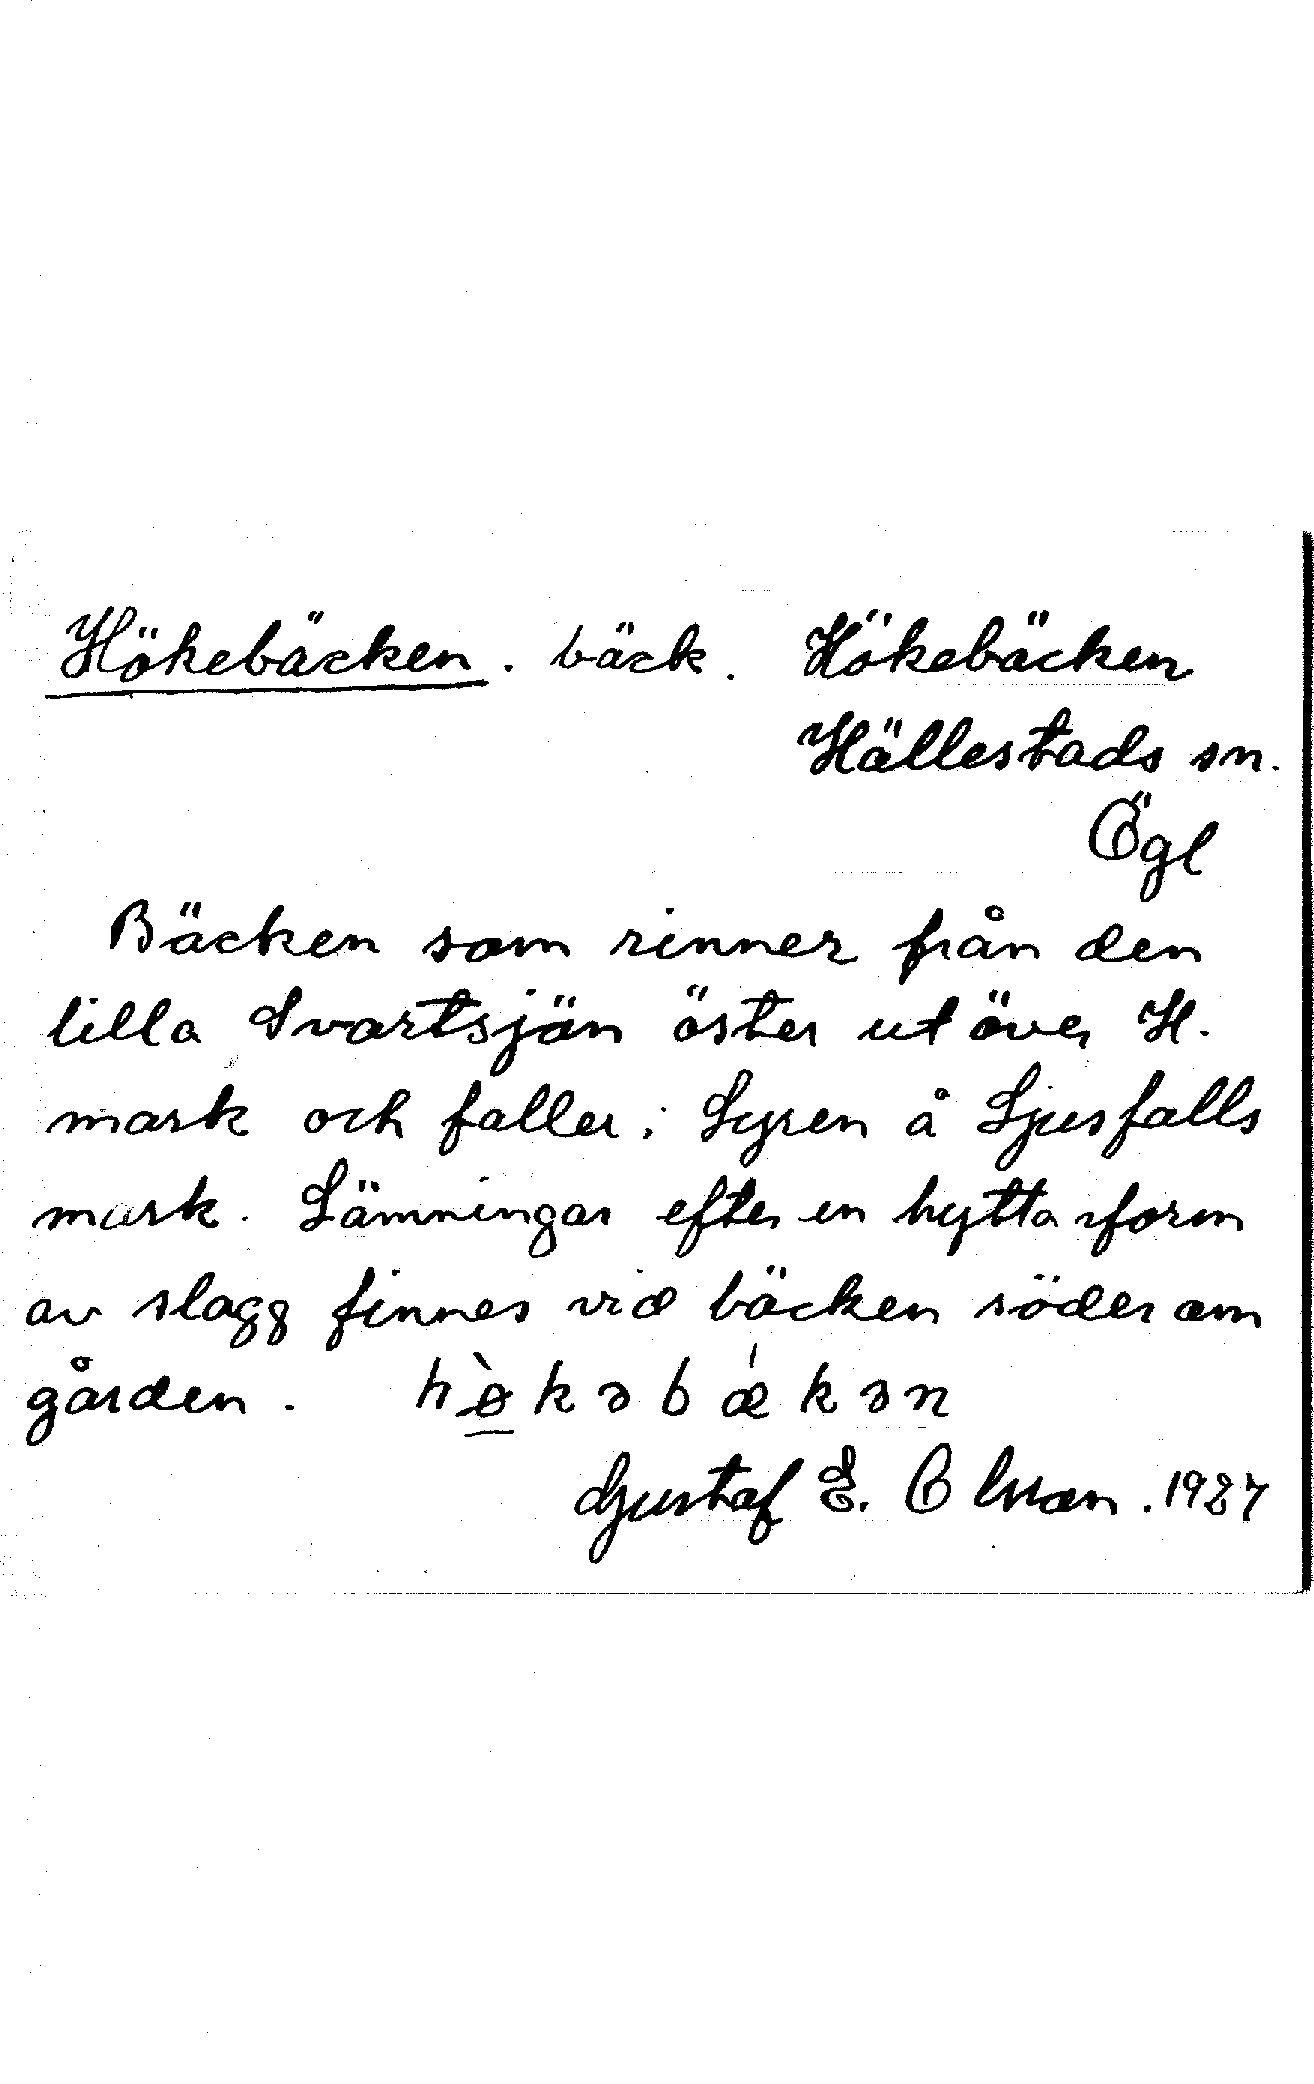 Hökebäcken. bäck. Hökebäcken
Hällestads sn.
Ögl
Bäcken som rinner från den
lilla Svartsjön öster ut över H.
mark och faller i Lyren å Ljusfalls
mark. Lämningar efter en hytta i form
av slagg finnes vid bäcken söder om
gården. hø̀kəbǽkən
Gustaf E. Olsson. 1927